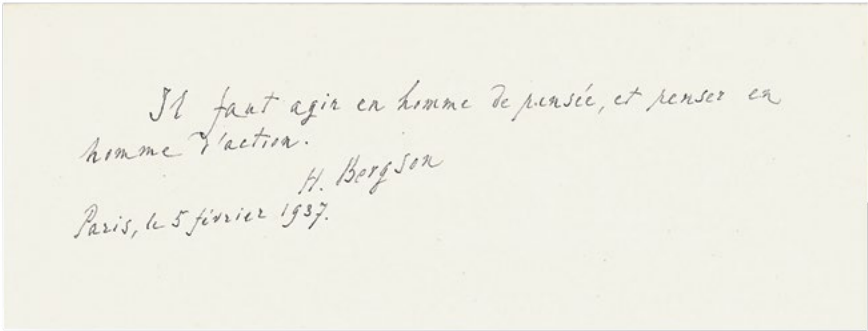 Il faut agir en homme de pensée, et penser en
homme d'action.
H. Bergson
Paris, le 5 février 1937.